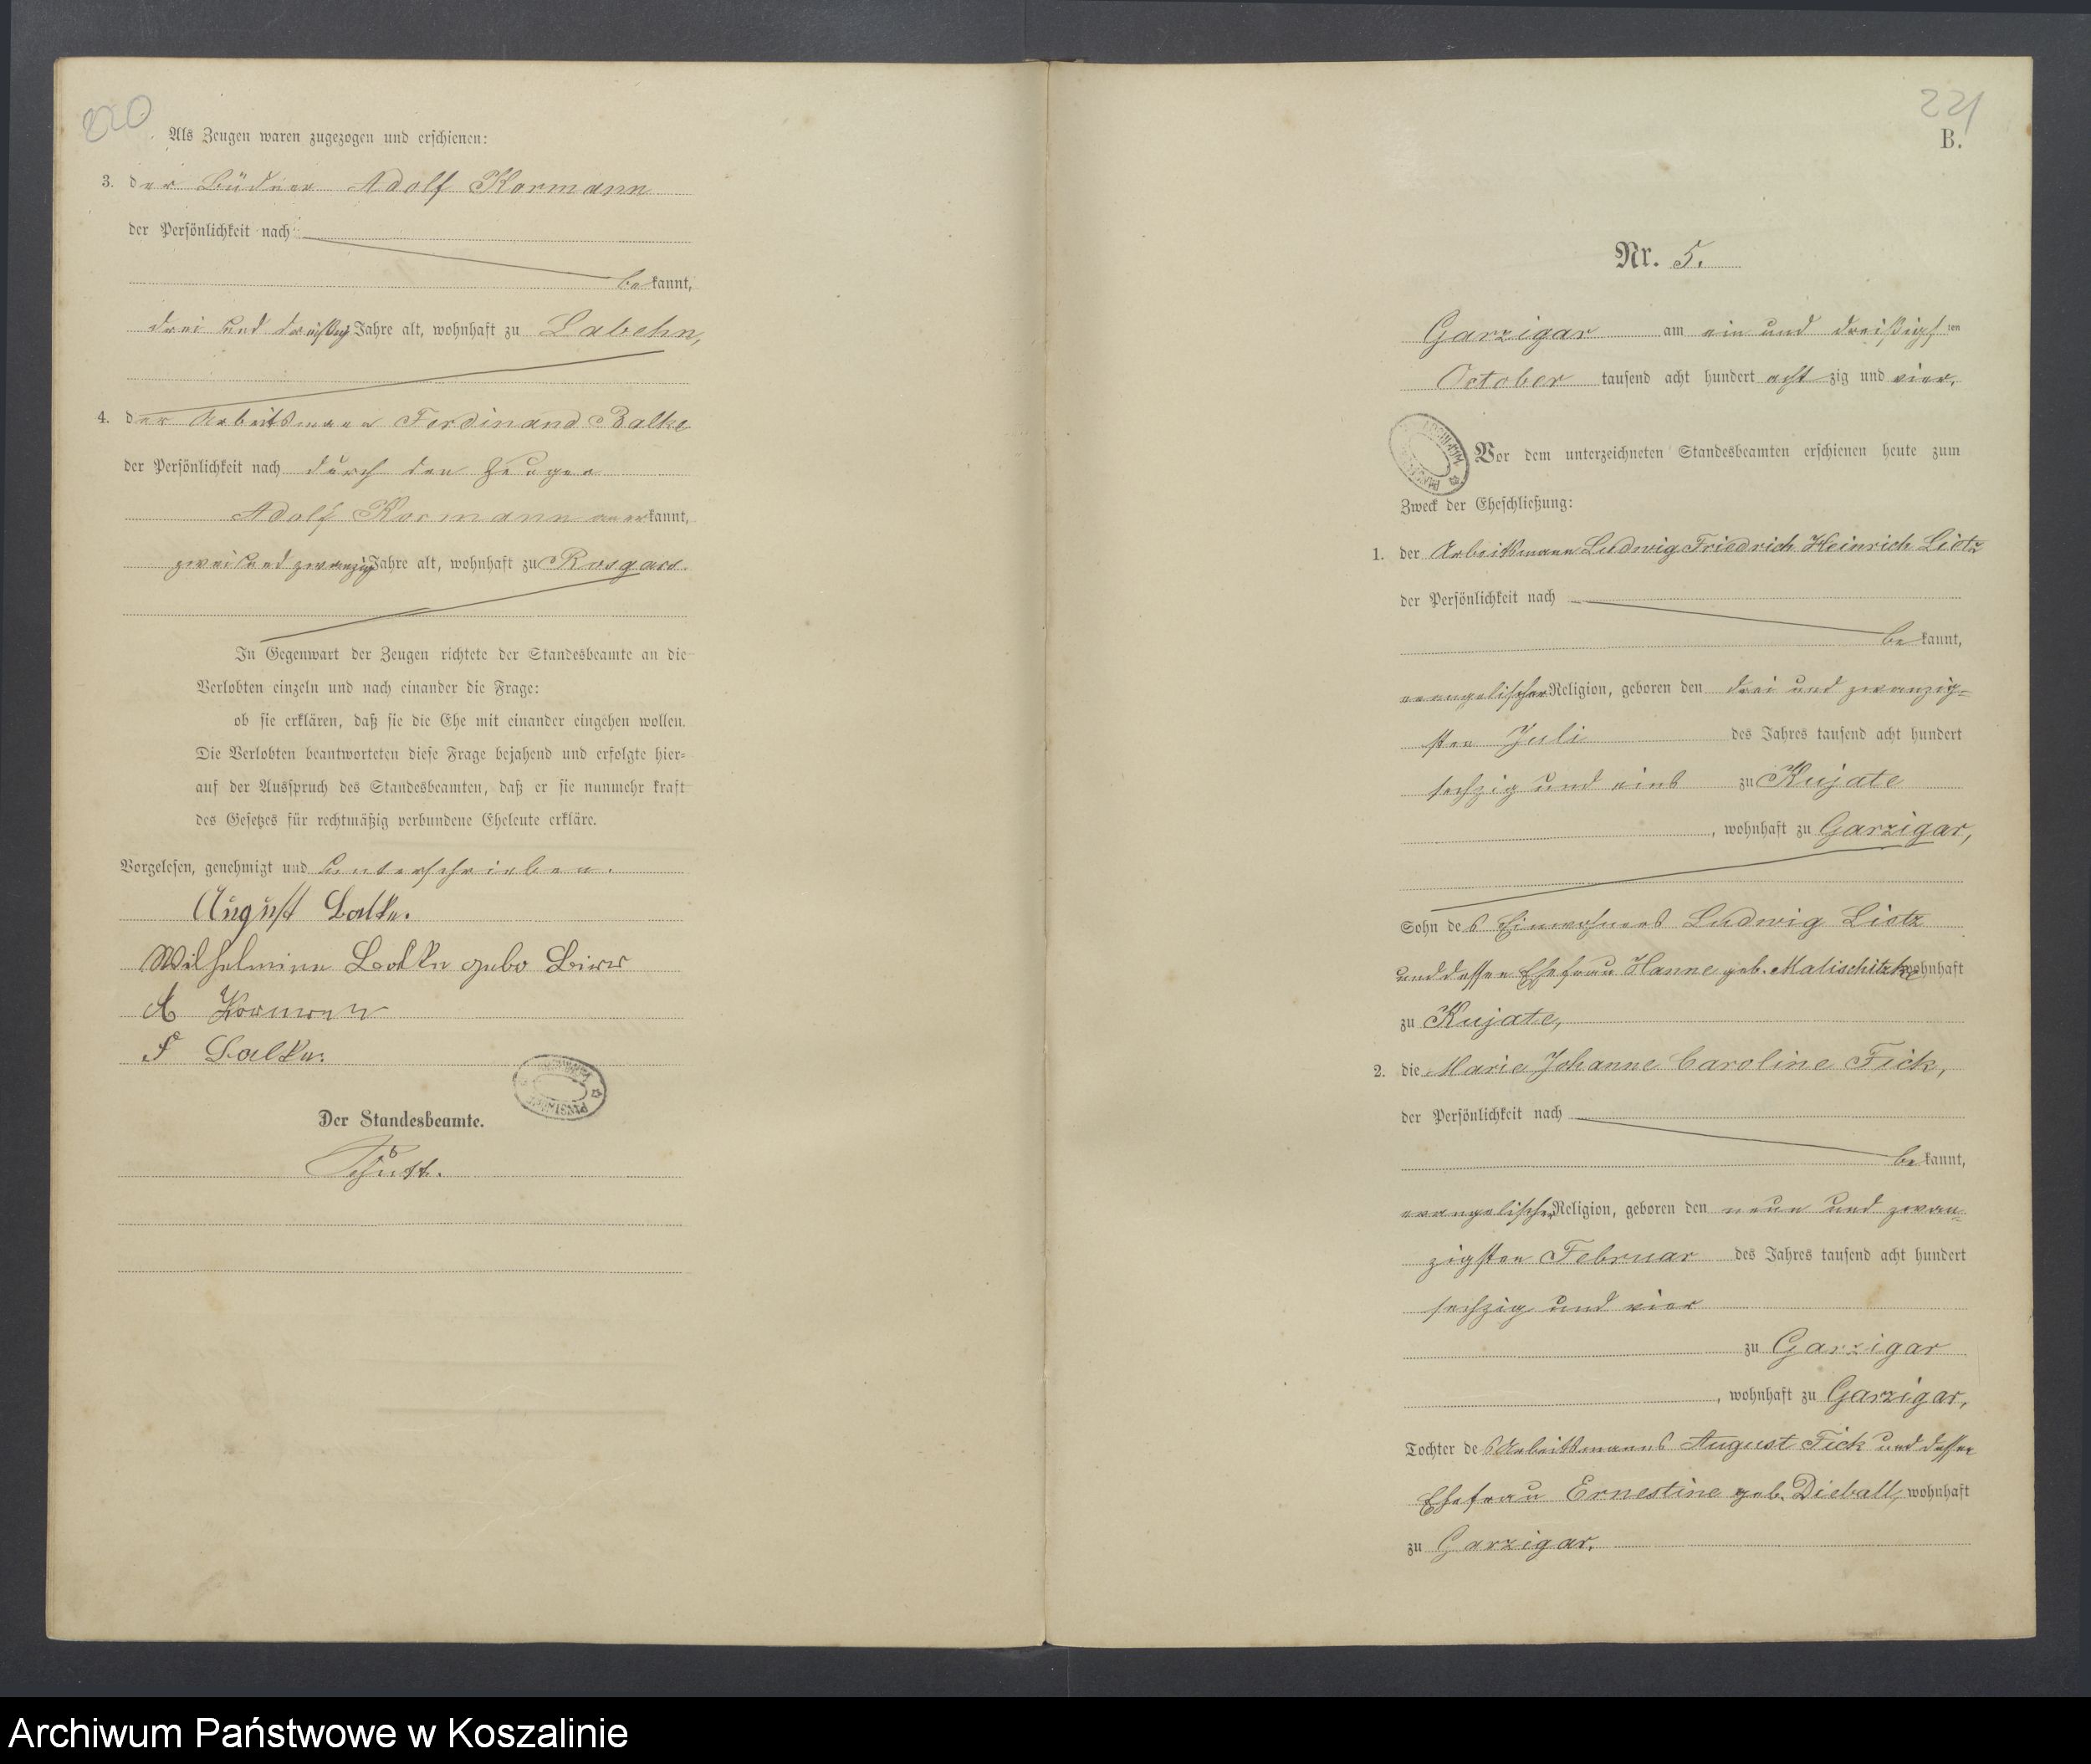 220
Als Zeugen waren zugezogen und erschienen:
3. der Büdner Adolf Kormann
der Persönlichkeit nach
bekannt,
drei und dreißig Jahre alt, wohnhaft zu Labehn,
4. der Arbeitsmann Ferdinand Balke
der Persönlichkeit nach durch den Zeugen
Adolf Kormann anerkannt,
zwei und zwanzig Jahre alt, wohnhaft zu Rosgars.
In Gegenwart der Zeugen richtete der Standesbeamte an die
Verlobten einzeln und nach einander die Frage:
ob sie erklären, daß sie die Ehe mit einander eingehen wollen.
Die Verlobten beantworteten diese Frage bejahend und erfolgte hier-
auf der Ausspruch des Standesbeamten, daß er sie nunmehr kraft
des Gesetzes für rechtmäßig verbundene Eheleute erkläre.
Vorgelesen, genehmigt und unterschrieben.
August Balke.
Wilhelmine Balke gebo
A Kormann
F Balke.
Der Standesbeamte.
221
B.
Nr. 5.
Garzigar am ein und dreißigsten
October tausend acht hundert achtzig und vier.
Vor dem unterzeichneten Standesbeamten erschienen heute zum
Zweck der Eheschließung:
1. der Arbeitsmann Ludwig Friedrich Heinrich Lietz
der Persönlichkeit nach
bekannt,
evangelischer Religion, geboren den drei und zwanzig-
sten Juli des Jahres tausend acht hundert
sechzig und eins zu Kujate
, wohnhaft zu Garzigar,
Sohn des Einwohners Ludwig Lietz
und dessen Ehefrau Hanne geb. Malischitzke wohnhaft
zu Kujate,
2. die Marie Johanne Caroline Fick,
der Persönlichkeit nach
bekannt,
evangelischer Religion, geboren den neun und zwan-
zigsten Februar des Jahres tausend acht hundert
sechzig und vier
zu Garzigar
, wohnhaft zu Garzigar,
Tochter des Arbeitsmanns August Fick und dessen
Ehefrau Ernestine geb. Dieball, wohnhaft
zu Garzigar.
Archiwum Państwowe w Koszalinie